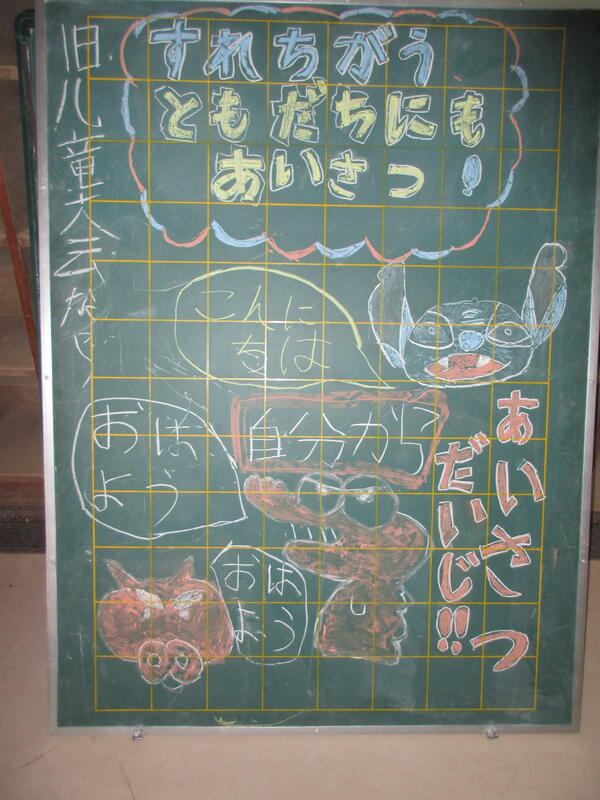 児童会だより
すれちがう
ともだちにも
あいさつ!
こんに
ちは
自分から
おは
よう
あいさつ
だいじ!!
おは
よう